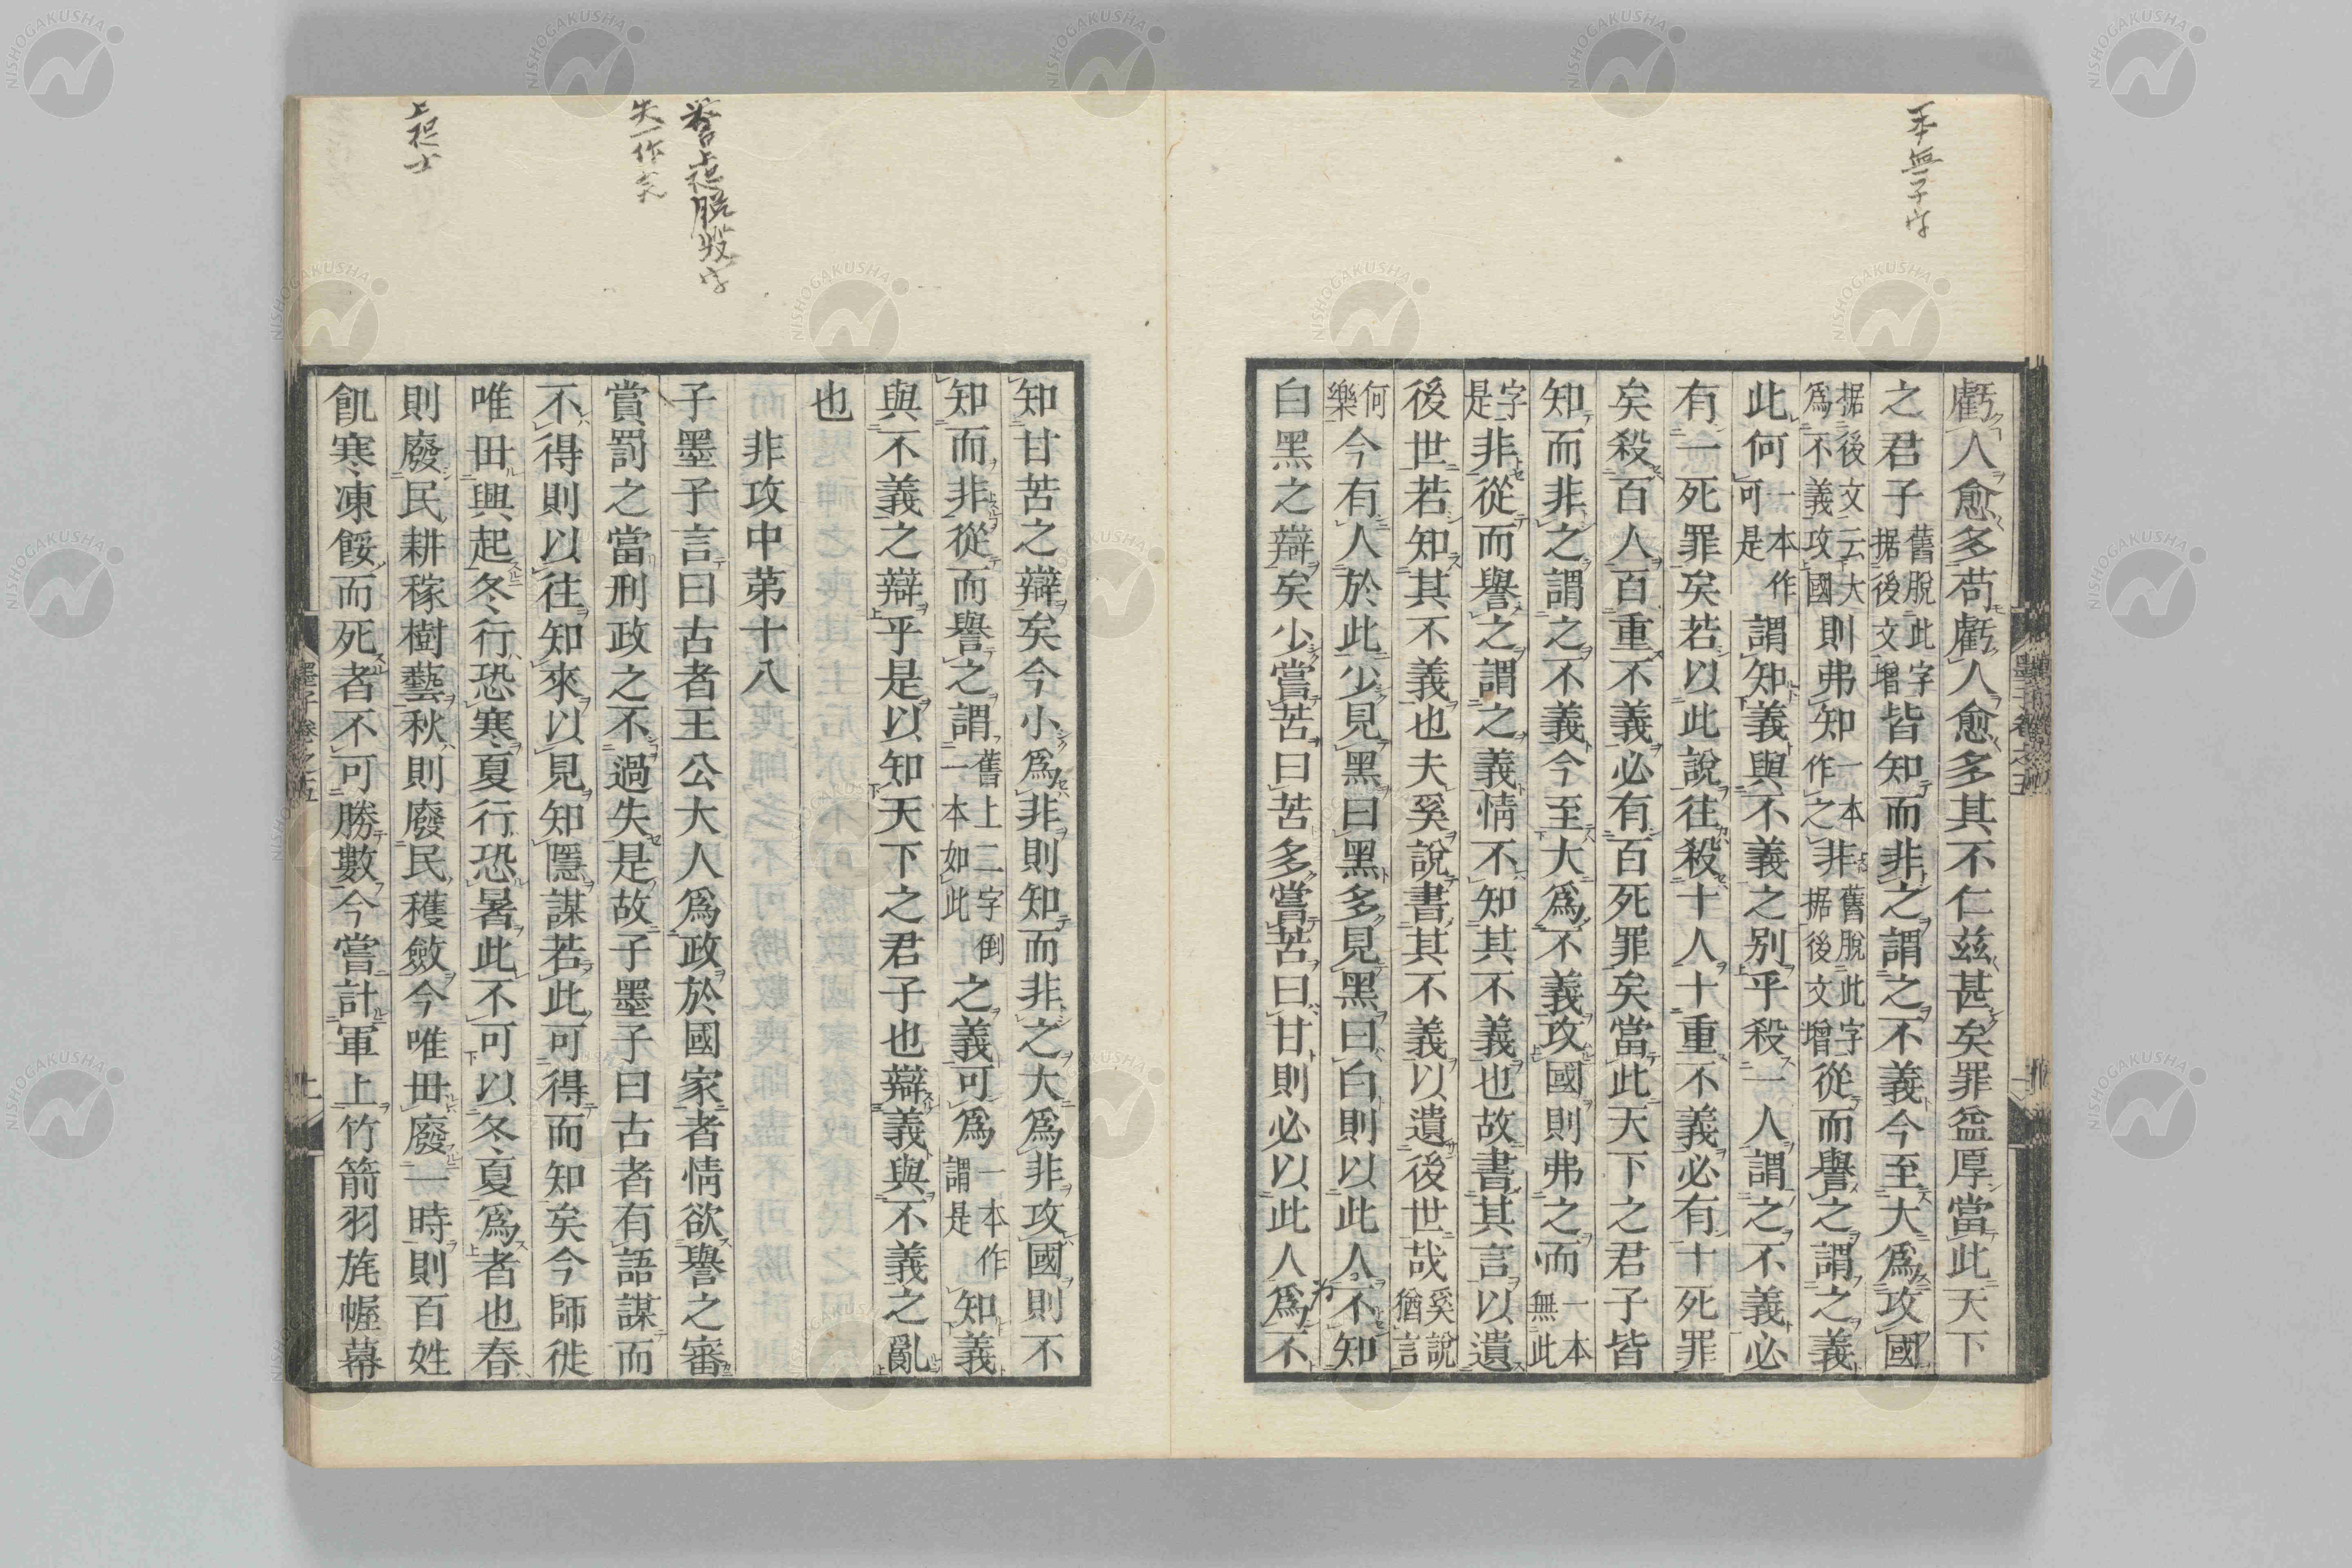 一本無子字
虧人愈多苟虧人愈多其不仁茲甚矣罪益厚當此天下
之君子舊脫此字据後文增皆知而非之謂之不義今至大爲攻國
据後文云大爲不義攻國則弗知一本作之非舊脫此字据後文增從而譽之謂之義
此何一本作可是謂知義與不義之別乎殺一人謂之不義必
有一死罪矣若以此說往殺十人十重不義必有十死罪
矣殺百人百重不義必有百死罪矣當此天下之君子皆
知而非之謂之不義今至大爲不義攻國則弗之而一本無此
字是非從而譽之謂之義情不知其不義也故書其言以遺
後世若知其不義也夫奚說書其不義以遺後世哉奚說猶言
何樂今有人於此少見黑曰黑多見黑曰白則以此人不知
白黑之辯矣少嘗苦曰苦多嘗苦曰甘則必以此人爲不
墨子卷之五
譽上恐脫毀字
失一作矣
上恐士
知甘苦之辯矣今小爲非則知而非之大爲非攻國則不
知而非從而譽之謂舊上二字倒一本如此之義可爲一本作謂是知義
與不義之辯乎是以知天下之君子也辯義與不義之亂
也
非攻中第十八
子墨子言曰古者王公大人爲政於國家者情欲譽之審
賞罰之當刑政之不過失是故子墨子曰古者有語謀而
不得則以往知來以見知隱謀若此可得而知矣今師徙
唯毌興起冬行恐寒夏行恐暑此不可以冬夏爲者也春
則廢民耕稼樹藝秋則廢民穫斂今唯毌廢一時則百姓
飢寒凍餒而死者不可勝數今嘗計軍上竹箭羽旄幄幕
墨子卷之五
NISHOGAKUSHA